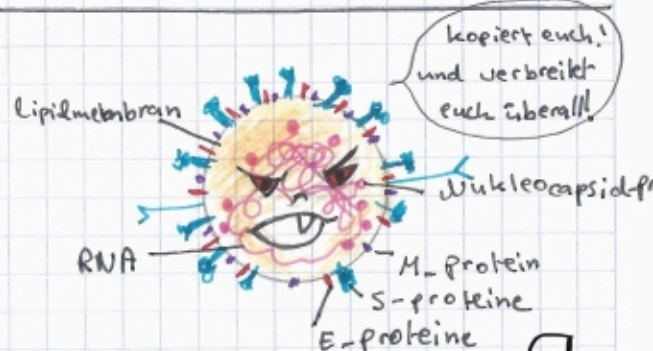 kopiert euch!
und verbreitet
euch überall!
Lipidmembran
Nukleocapsid-pr
RNA
M-protein
S-proteine
E-proteine